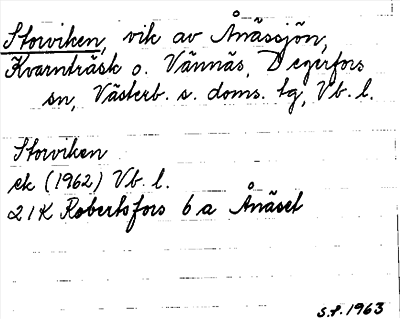 Storviken, vik av Ånässjön,
Kvarnträsk o. Vännäs, Degerfors
sn, Västerb. s. doms. tg, Vb. l.
Storviken
ek (1962) Vb. l.
21K Robertsfors 6a Ånäset
S.F. 1963